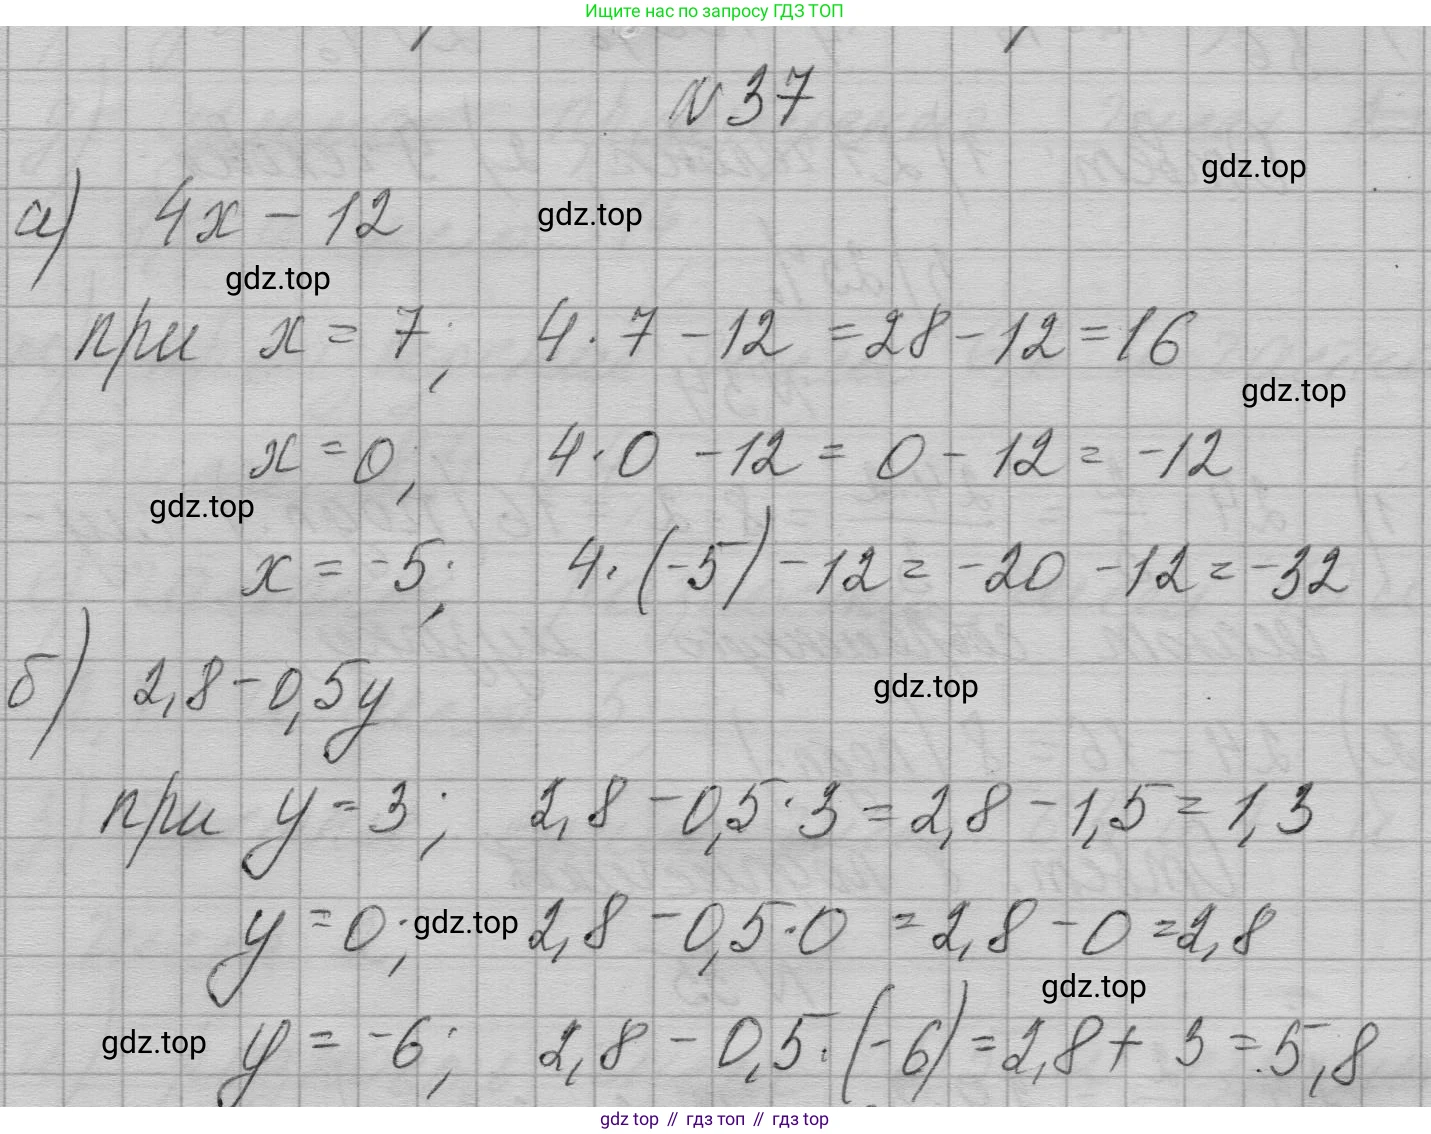 Ищите нас по запросу ГДЗ ТОП
№ 37
gdz.top
а) 4x - 12
gdz.top
gdz.top
при x = 7; 4 · 7 - 12 = 28 - 12 = 16
gdz.top
x = 0; 4 · 0 - 12 = 0 - 12 = -12
gdz.top
x = -5; 4 · (-5) - 12 = -20 - 12 = -32
б) 2,8 - 0,5y
gdz.top
при y = 3; 2,8 - 0,5 · 3 = 2,8 - 1,5 = 1,3
y = 0; gdz.top 2,8 - 0,5 · 0 = 2,8 - 0 = 2,8
gdz.top
gdz.top y = -6; 2,8 - 0,5 · (-6) = 2,8 + 3 = 5,8
gdz top // гдз топ // gdz.top